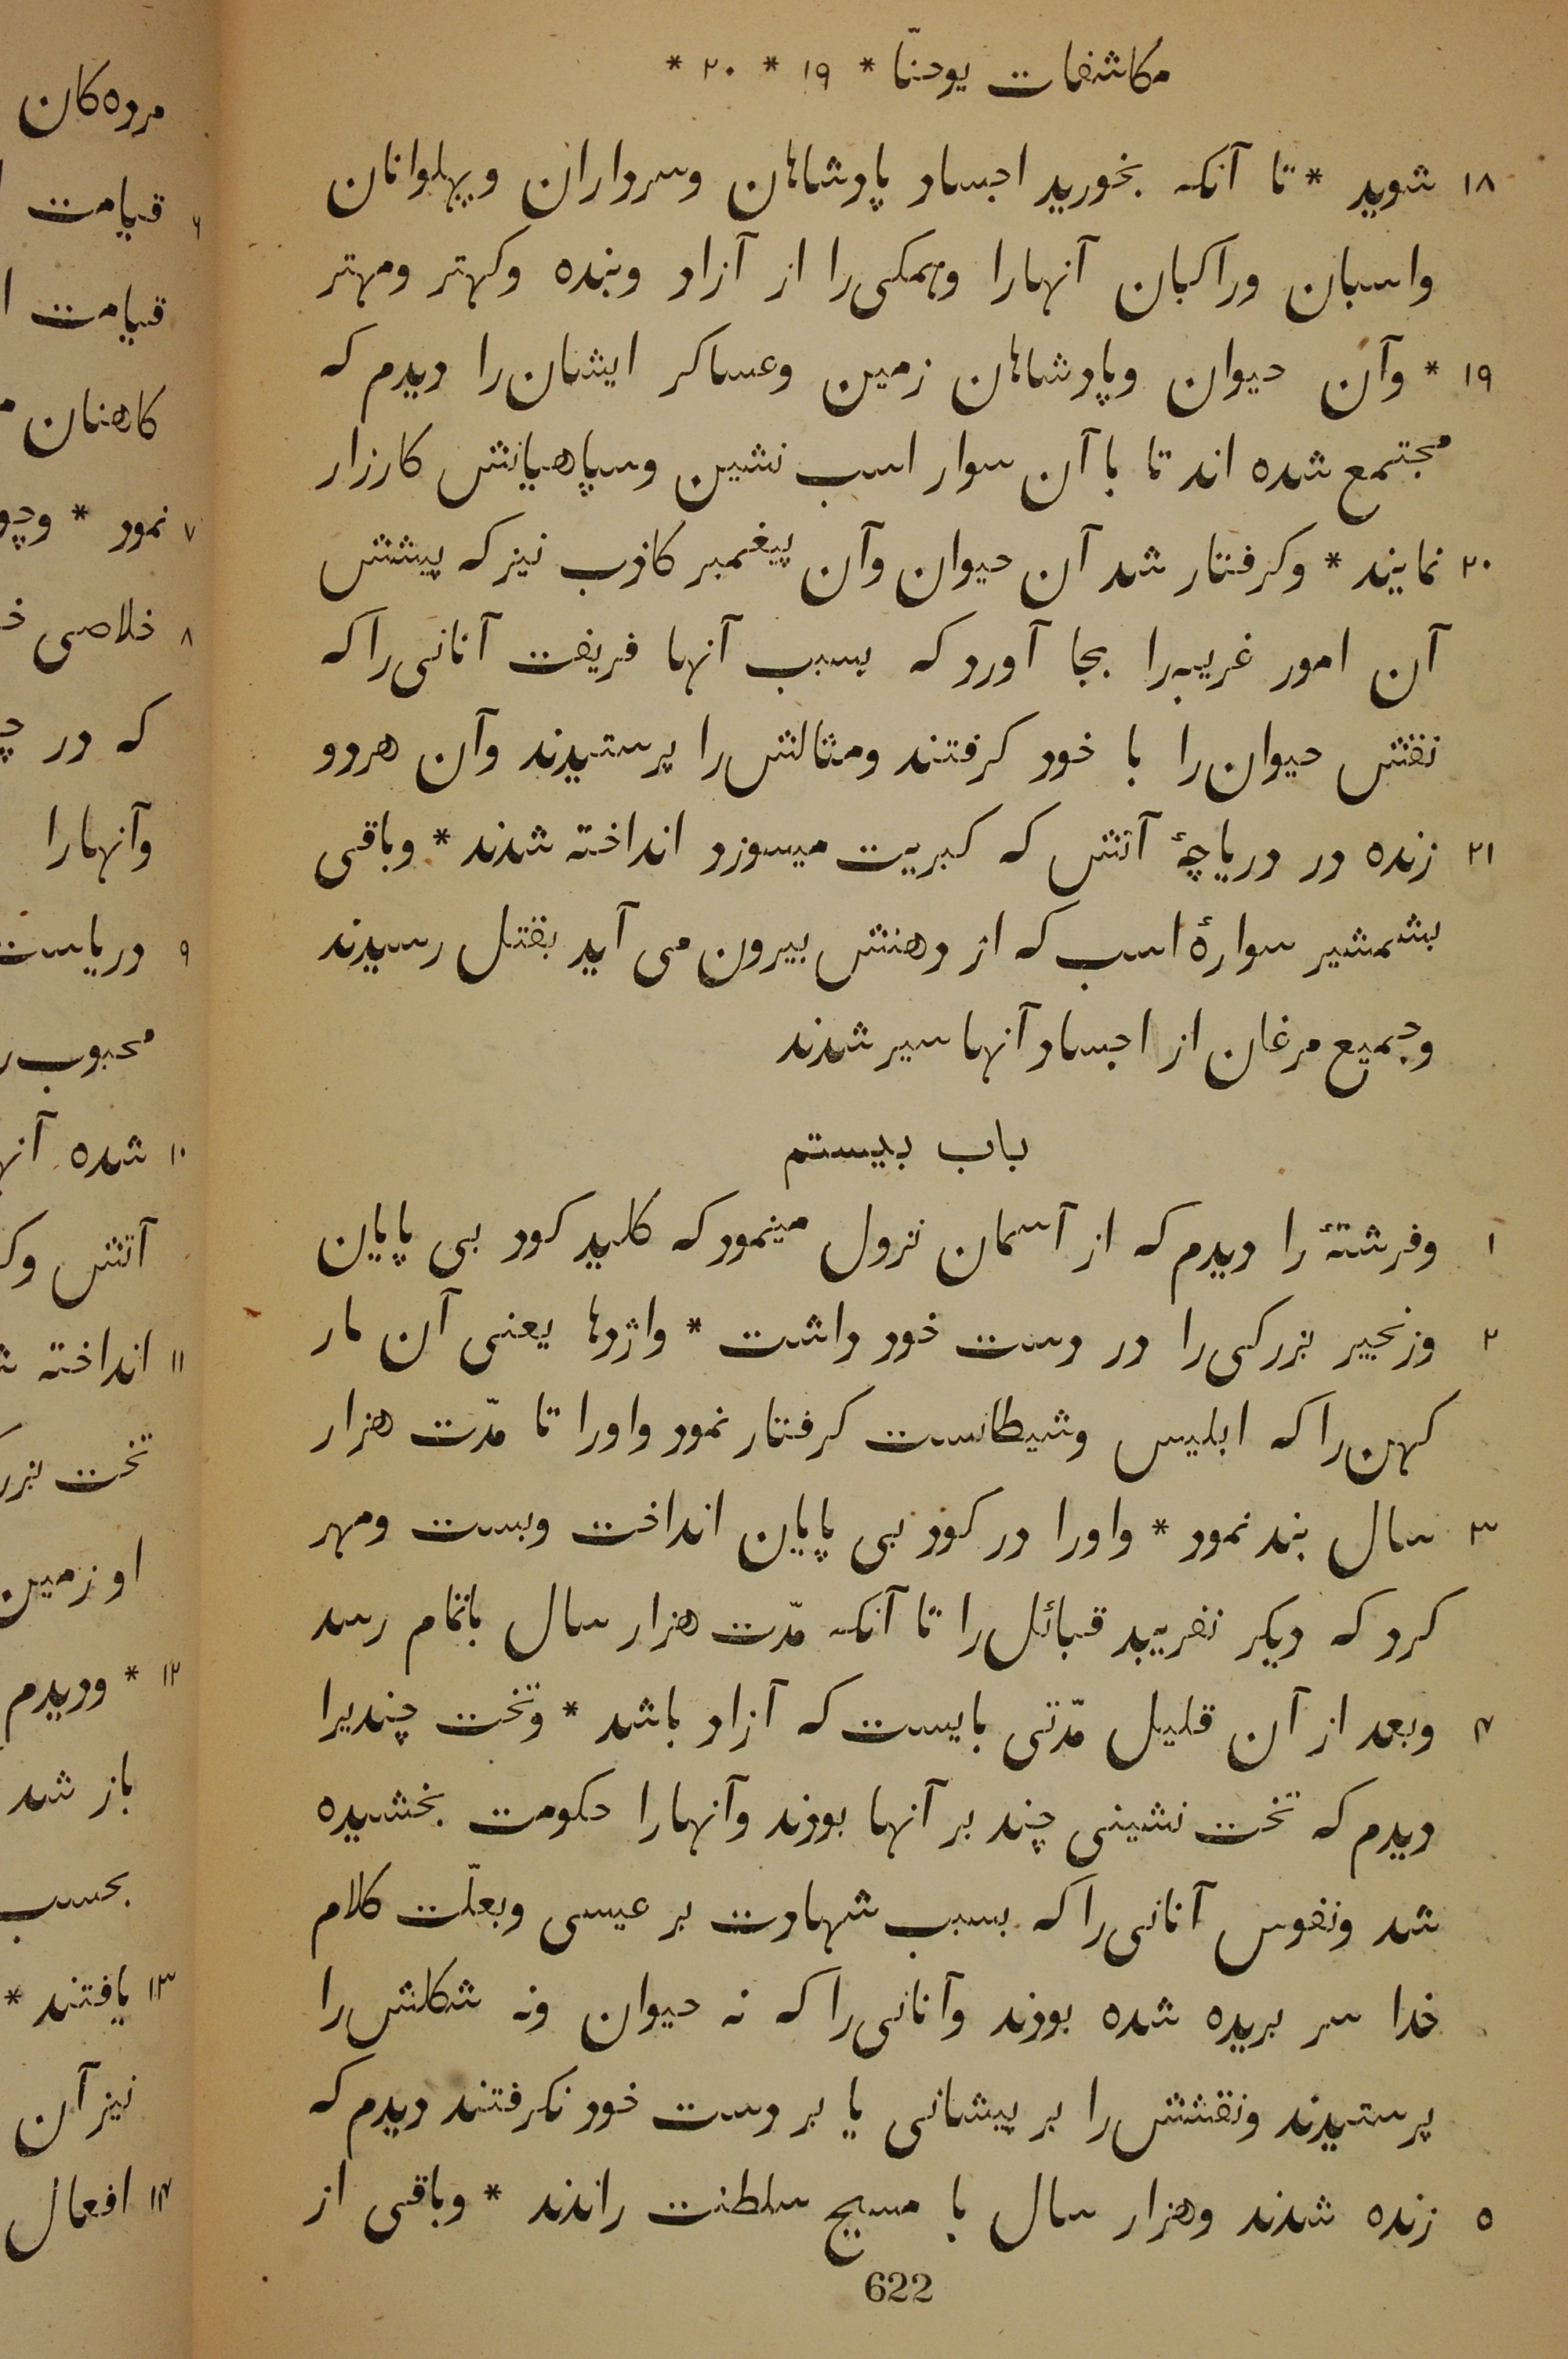 مکاشفات یوحنّا * ١٩ * ٢٠ *
١٨ شوید * تا آنکه بخورید اجساد پادشاهان وسرداران وپهلوانان
واسبان وراکبان آنهارا وهمکی‌را از آزاد وبنده وکهتر ومهتر
١٩ * وآن حیوان وپادشاهان زمین وعساکر ایشان‌را دیدم که
مجتمع شده اند تا با آن سوار اسب نشین وسپاهیانش کارزار
٢٠ نمایند * وکرفتار شد آن حیوان وآن پیغمبر کاذب نیز که پیشش
آن امور غریبه‌را بجا آورد که بسبب آنها فریفت آنانی‌را که
نقش حیوان‌را با خود کرفتند ومثالش‌را پرستیدند وآن هردو
٢١ زنده در دریاچهٔ آتش که کبریت میسوزد انداخته شدند * وباقی
بشمشیر سوارهٔ اسب که از دهنش بیرون می آید بقتل رسیدند
وجمیع مرغان از اجساد آنها سیر شدند
باب بیستم
١ وفرشتهٔ را دیدم که از آسمان نزول مینمود که کلید کود بی پایان
٢ وزنجیر بزرکی‌را در دست خود داشت * واژدها یعنی آن مار
کهن‌را که ابلیس وشیطانست کرفتار نمود واورا تا مدّت هزار
٣ سال بند نمود * واورا در کود بی پایان انداخت وبست ومهر
کرد که دیکر نفریبد قبائل‌را تا آنکه مدّت هزار سال باتمام رسد
۴ وبعد از آن قلیل مدّتی بایست که آزاد باشد * وتخت چندیرا
دیدم که تخت نشینی چند بر آنها بودند وآنهارا حکومت بخشیده
شد ونفوس آنانی‌را که بسبب شهادت بر عیسی وبعلّت کلام
خدا سر بریده شده بودند وآنانی‌را که نه حیوان ونه شکلش‌را
پرستیدند ونقشش‌را بر پیشانی یا بر دست خود نکرفتند دیدم که
٥ زنده شدند وهزار سال با مسیح سلطنت راندند * وباقی از
622
مرده‌کان
۶ قیامت
قیامت
کاهنان
٧ نمود *
٨ خلاصی
که در
وآنهارا
٩ دریاست
محبوب
١٠ شده
آتش
١١ انداخته
تخت
او زمین
١٢ * ودیدم
باز شد
بحسب
١٣ یافتند *
نیز آن
١۴ افعال